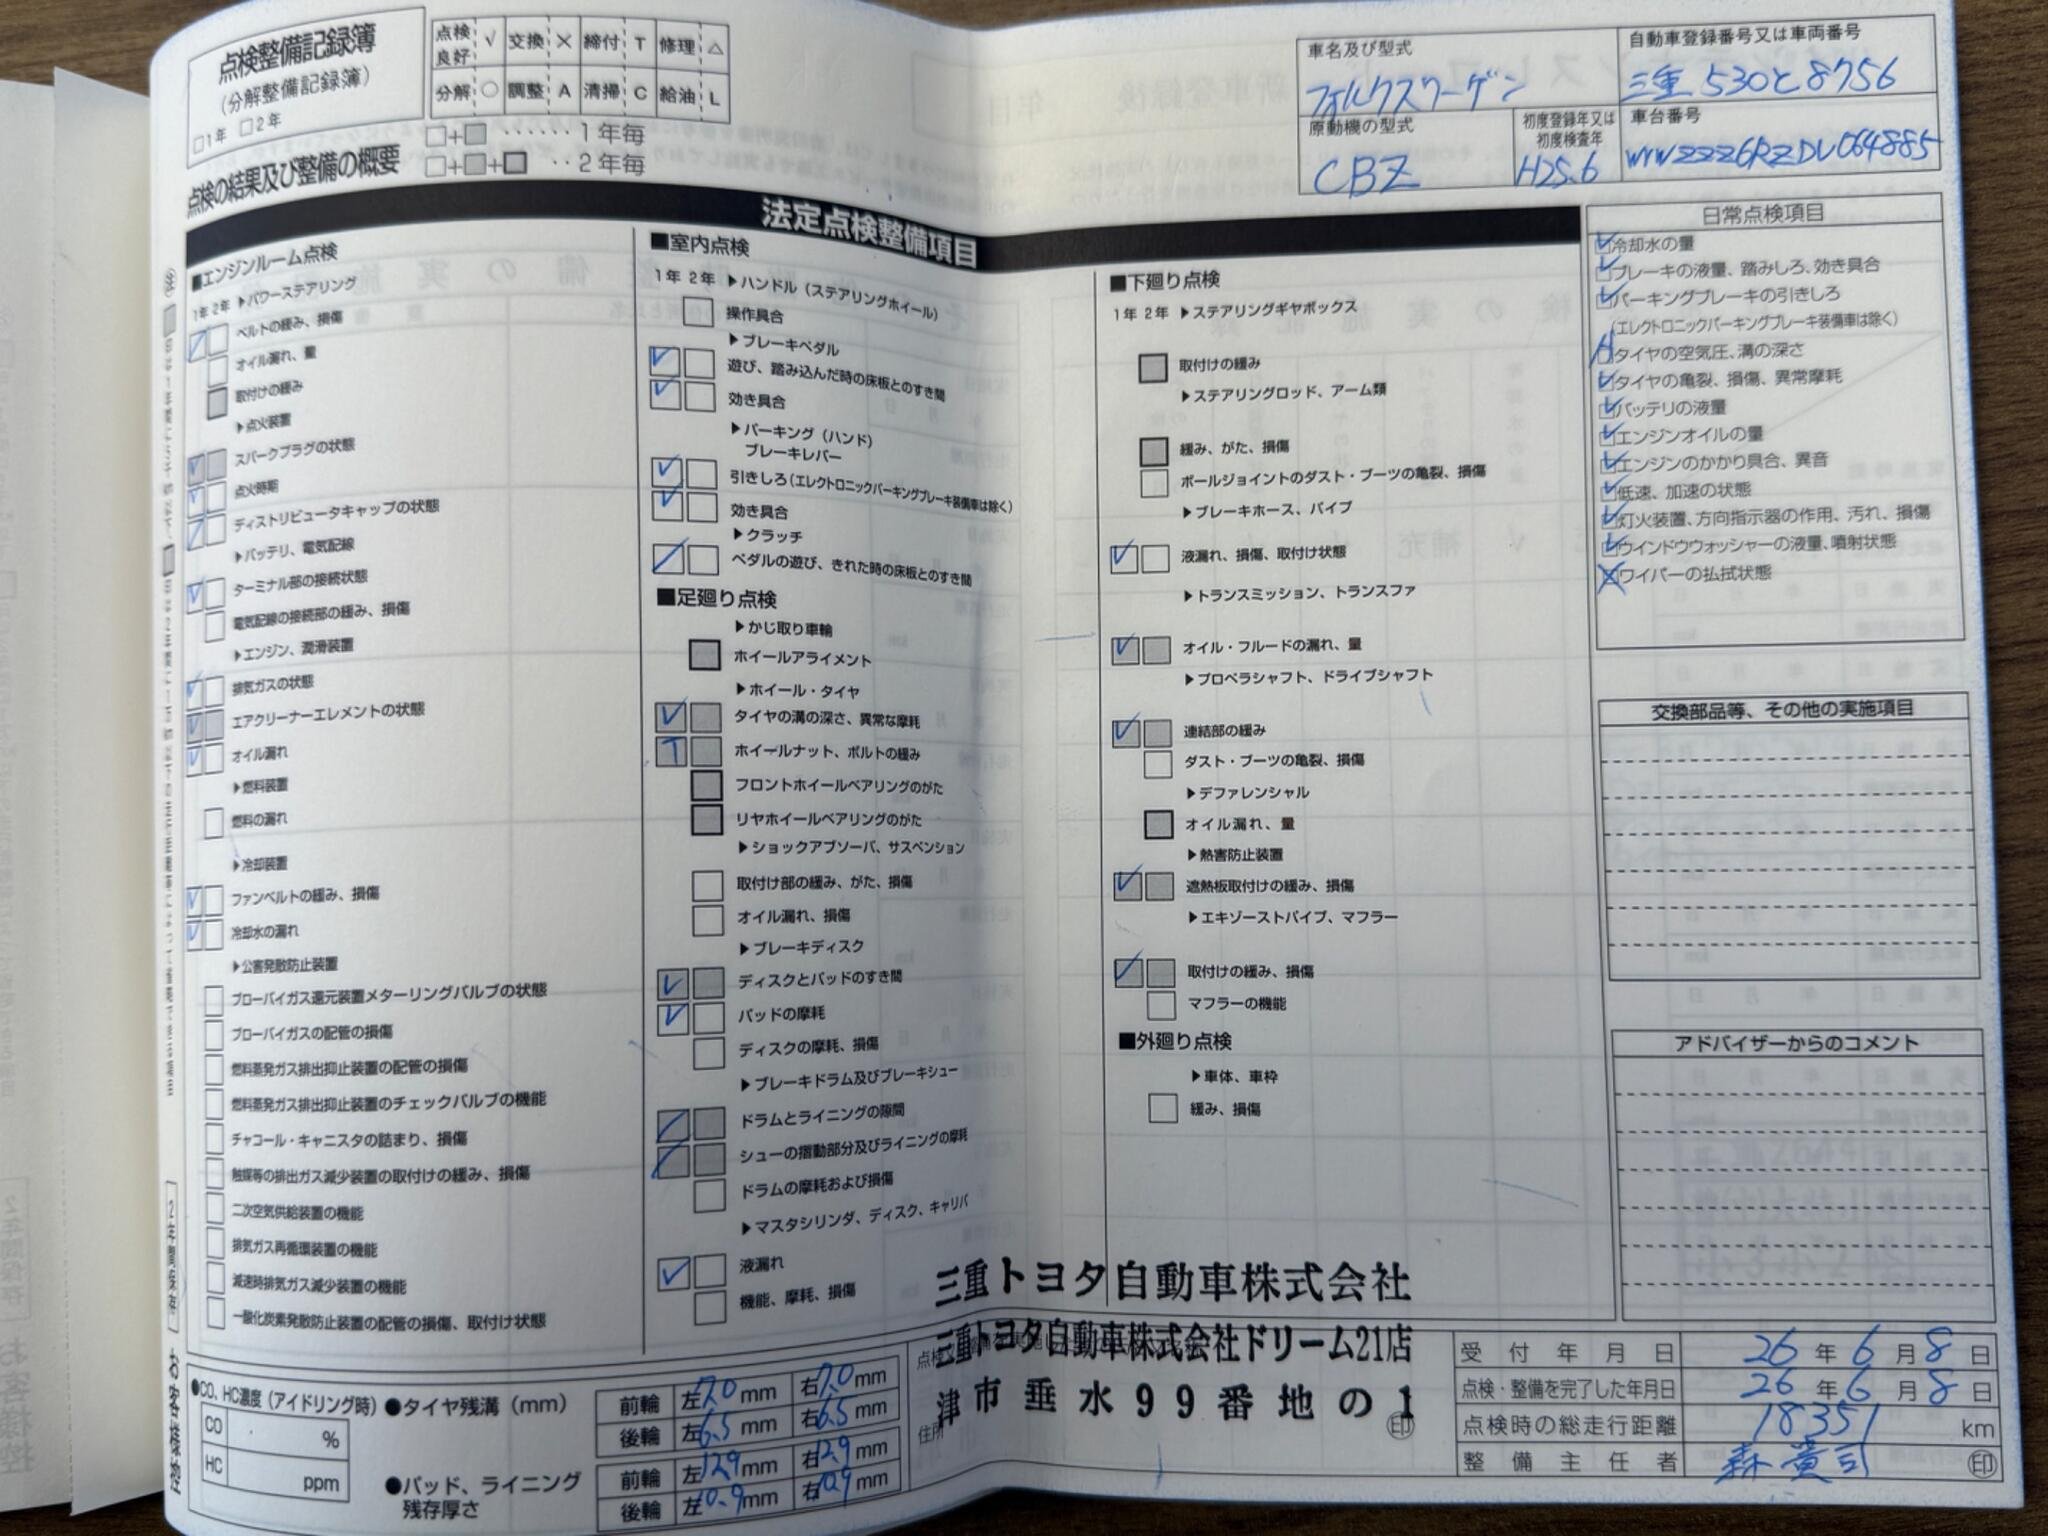 点検整備記録簿
(分解整備記録簿)
□1年 □2年
点検良好 √ 交換 × 締付 T 修理 △
分解 ○ 調整 A 清掃 C 給油 L
□+□ ‥‥‥ 1年毎
□+□+□ ‥2年毎
点検の結果及び整備の概要
車名及び型式
フォルクスワーゲン
自動車登録番号又は車両番号
三重 530 と 8756
原動機の型式
CBZ
初度登録年又は初度検査年
H25.6
車台番号
WVWZZZ6RZDU064885
法定点検整備項目
■エンジンルーム点検
1年 2年 ▶パワーステアリング
ベルトの緩み、損傷
オイル漏れ、量
取付けの緩み
▶点火装置
スパークプラグの状態
点火時期
ディストリビュータキャップの状態
▶バッテリ、電気配線
ターミナル部の接続状態
電気配線の接続部の緩み、損傷
▶エンジン、潤滑装置
排気ガスの状態
エアクリーナーエレメントの状態
オイル漏れ
▶燃料装置
燃料の漏れ
▶冷却装置
ファンベルトの緩み、損傷
冷却水の漏れ
▶公害発散防止装置
ブローバイガス還元装置メターリングバルブの状態
ブローバイガスの配管の損傷
燃料蒸発ガス排出抑止装置の配管の損傷
燃料蒸発ガス排出抑止装置のチェックバルブの機能
チャコール・キャニスタの詰まり、損傷
触媒等の排出ガス減少装置の取付けの緩み、損傷
二次空気供給装置の機能
排気ガス再循環装置の機能
減速時排気ガス減少装置の機能
一酸化炭素発散防止装置の配管の損傷、取付け状態
■室内点検
1年 2年 ▶ハンドル(ステアリングホイール)
操作具合
▶ブレーキペダル
遊び、踏み込んだ時の床板とのすき間
効き具合
▶パーキング(ハンド)
ブレーキレバー
引きしろ(エレクトロニックパーキングブレーキ装備車は除く)
効き具合
▶クラッチ
ペダルの遊び、きれた時の床板とのすき間
■足廻り点検
▶かじ取り車輪
ホイールアライメント
▶ホイール・タイヤ
タイヤの溝の深さ、異常な摩耗
T ホイールナット、ボルトの緩み
フロントホイールベアリングのがた
リヤホイールベアリングのがた
▶ショックアブソーバ、サスペンション
取付け部の緩み、がた、損傷
オイル漏れ、損傷
▶ブレーキディスク
ディスクとパッドのすき間
パッドの摩耗
ディスクの摩耗、損傷
▶ブレーキドラム及びブレーキシュー
ドラムとライニングの隙間
シューの摺動部分及びライニングの摩耗
ドラムの摩耗および損傷
▶マスタシリンダ、ディスク、キャリパ
液漏れ
機能、摩耗、損傷
■下廻り点検
1年 2年 ▶ステアリングギヤボックス
取付けの緩み
▶ステアリングロッド、アーム類
緩み、がた、損傷
ボールジョイントのダスト・ブーツの亀裂、損傷
▶ブレーキホース、パイプ
液漏れ、損傷、取付け状態
▶トランスミッション、トランスファ
オイル・フルードの漏れ、量
▶プロペラシャフト、ドライブシャフト
連結部の緩み
ダスト・ブーツの亀裂、損傷
▶デファレンシャル
オイル漏れ、量
▶熱害防止装置
遮熱板取付けの緩み、損傷
▶エキゾーストパイプ、マフラー
取付けの緩み、損傷
マフラーの機能
■外廻り点検
▶車体、車枠
緩み、損傷
日常点検項目
冷却水の量
ブレーキの液量、踏みしろ、効き具合
パーキングブレーキの引きしろ
(エレクトロニックパーキングブレーキ装備車は除く)
タイヤの空気圧、溝の深さ
タイヤの亀裂、損傷、異常摩耗
バッテリの液量
エンジンオイルの量
エンジンのかかり具合、異音
低速、加速の状態
灯火装置、方向指示器の作用、汚れ、損傷
ウインドウウォッシャーの液量、噴射状態
ワイパーの払拭状態
交換部品等、その他の実施項目
アドバイザーからのコメント
2年間保存
お客様控
●CO、HC濃度(アイドリング時)
CO %
HC ppm
●タイヤ残溝(mm)
前輪 左7.0mm 右7.0mm
後輪 左6.5mm 右6.5mm
●パッド、ライニング
残存厚さ
前輪 左12.9mm 右12.9mm
後輪 左10.9mm 右10.9mm
三重トヨタ自動車株式会社
三重トヨタ自動車株式会社ドリーム21店
津市垂水99番地の1
住所
印
受付年月日 26年6月8日
点検・整備を完了した年月日 26年6月8日
点検時の総走行距離 18351 km
整備主任者 森 貴司 印